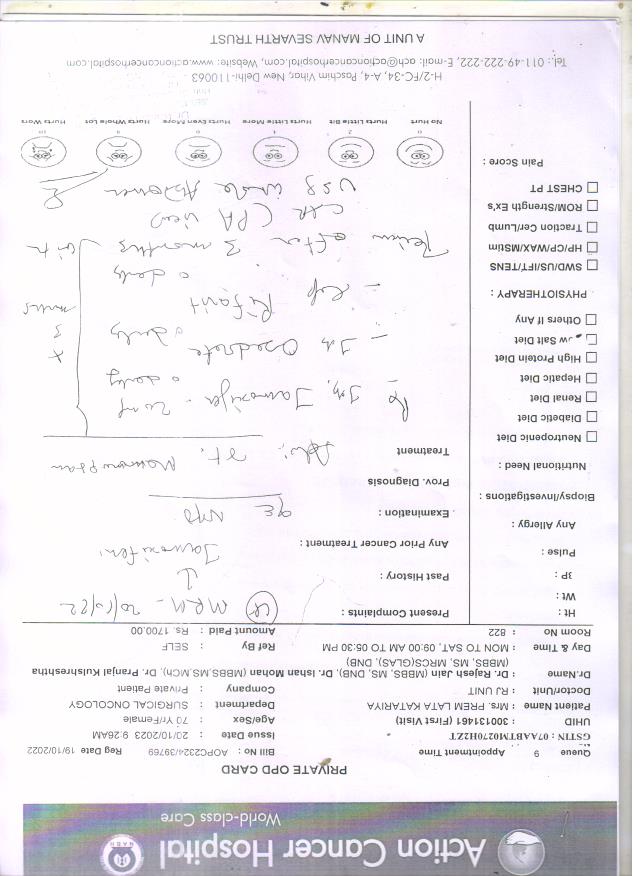 Action Cancer Hospital
World-class Care
NABH
PRIVATE OPD CARD
Queue 9 Appointment Time
Bill No : AOPC2324/39769 Reg Date 19/10/2022
GSTIN : 07AABTM0270H2ZT
Issue Date : 20/10/2023 9:26AM
UHID : 300131461 (First Visit)
Age/Sex : 70 Yr/Female
Patient Name : Mrs. PREM LATA KATARIYA
Department : SURGICAL ONCOLOGY
Doctor/Unit : RJ UNIT
Company : Private Patient
Dr.Name : Dr. Rajesh Jain (MBBS, MS, DNB), Dr. Ishan Mohan (MBBS,MS,MCh), Dr. Pranjal Kulshreshtha
(MBBS, MS, MRCS(GLAS), DNB)
Day & Time : MON TO SAT, 09:00 AM TO 05:30 PM
Ref By : SELF
Room No : 822
Amount Paid : Rs. 1700.00
Ht :
Wt :
BP :
Pulse :
Any Allergy :
Biopsy/Investigations :
Nutritional Need :
Neutropenic Diet
Diabetic Diet
Renal Diet
Hepatic Diet
High Protein Diet
Low Salt Diet
Others If Any
PHYSIOTHERAPY :
SWD/US/IFT/TENS
HP/CP/WAX/MStim
Traction Cer/Lumb
ROM/Strength Ex's
CHEST PT
Pain Score :
Present Complaints :
MRM -
Past History :
↓
Any Prior Cancer Treatment :
Tamoxifen
Examination :
Prov. Diagnosis
Treatment
Adv: Rt. Mammogram
Rx Tab, Tamoxifen - 20mg
o daily
- Tab
o daily
- Cap
o daily
x
3
months
Review after 3 months with
CXR (PA view)
USG whole Abdomen
0 2 4 6 8 10
No Hurt Hurts Little Bit Hurts Little More Hurts Even More Hurts Whole Lot Hurts Worst
H-2/FC-34, A-4, Paschim Vihar, New Delhi-110063
Tel.: 011-49-222-222, E-mail: ach@actioncancerhospital.com, Website: www.actioncancerhospital.com
A UNIT OF MANAV SEVARTH TRUST